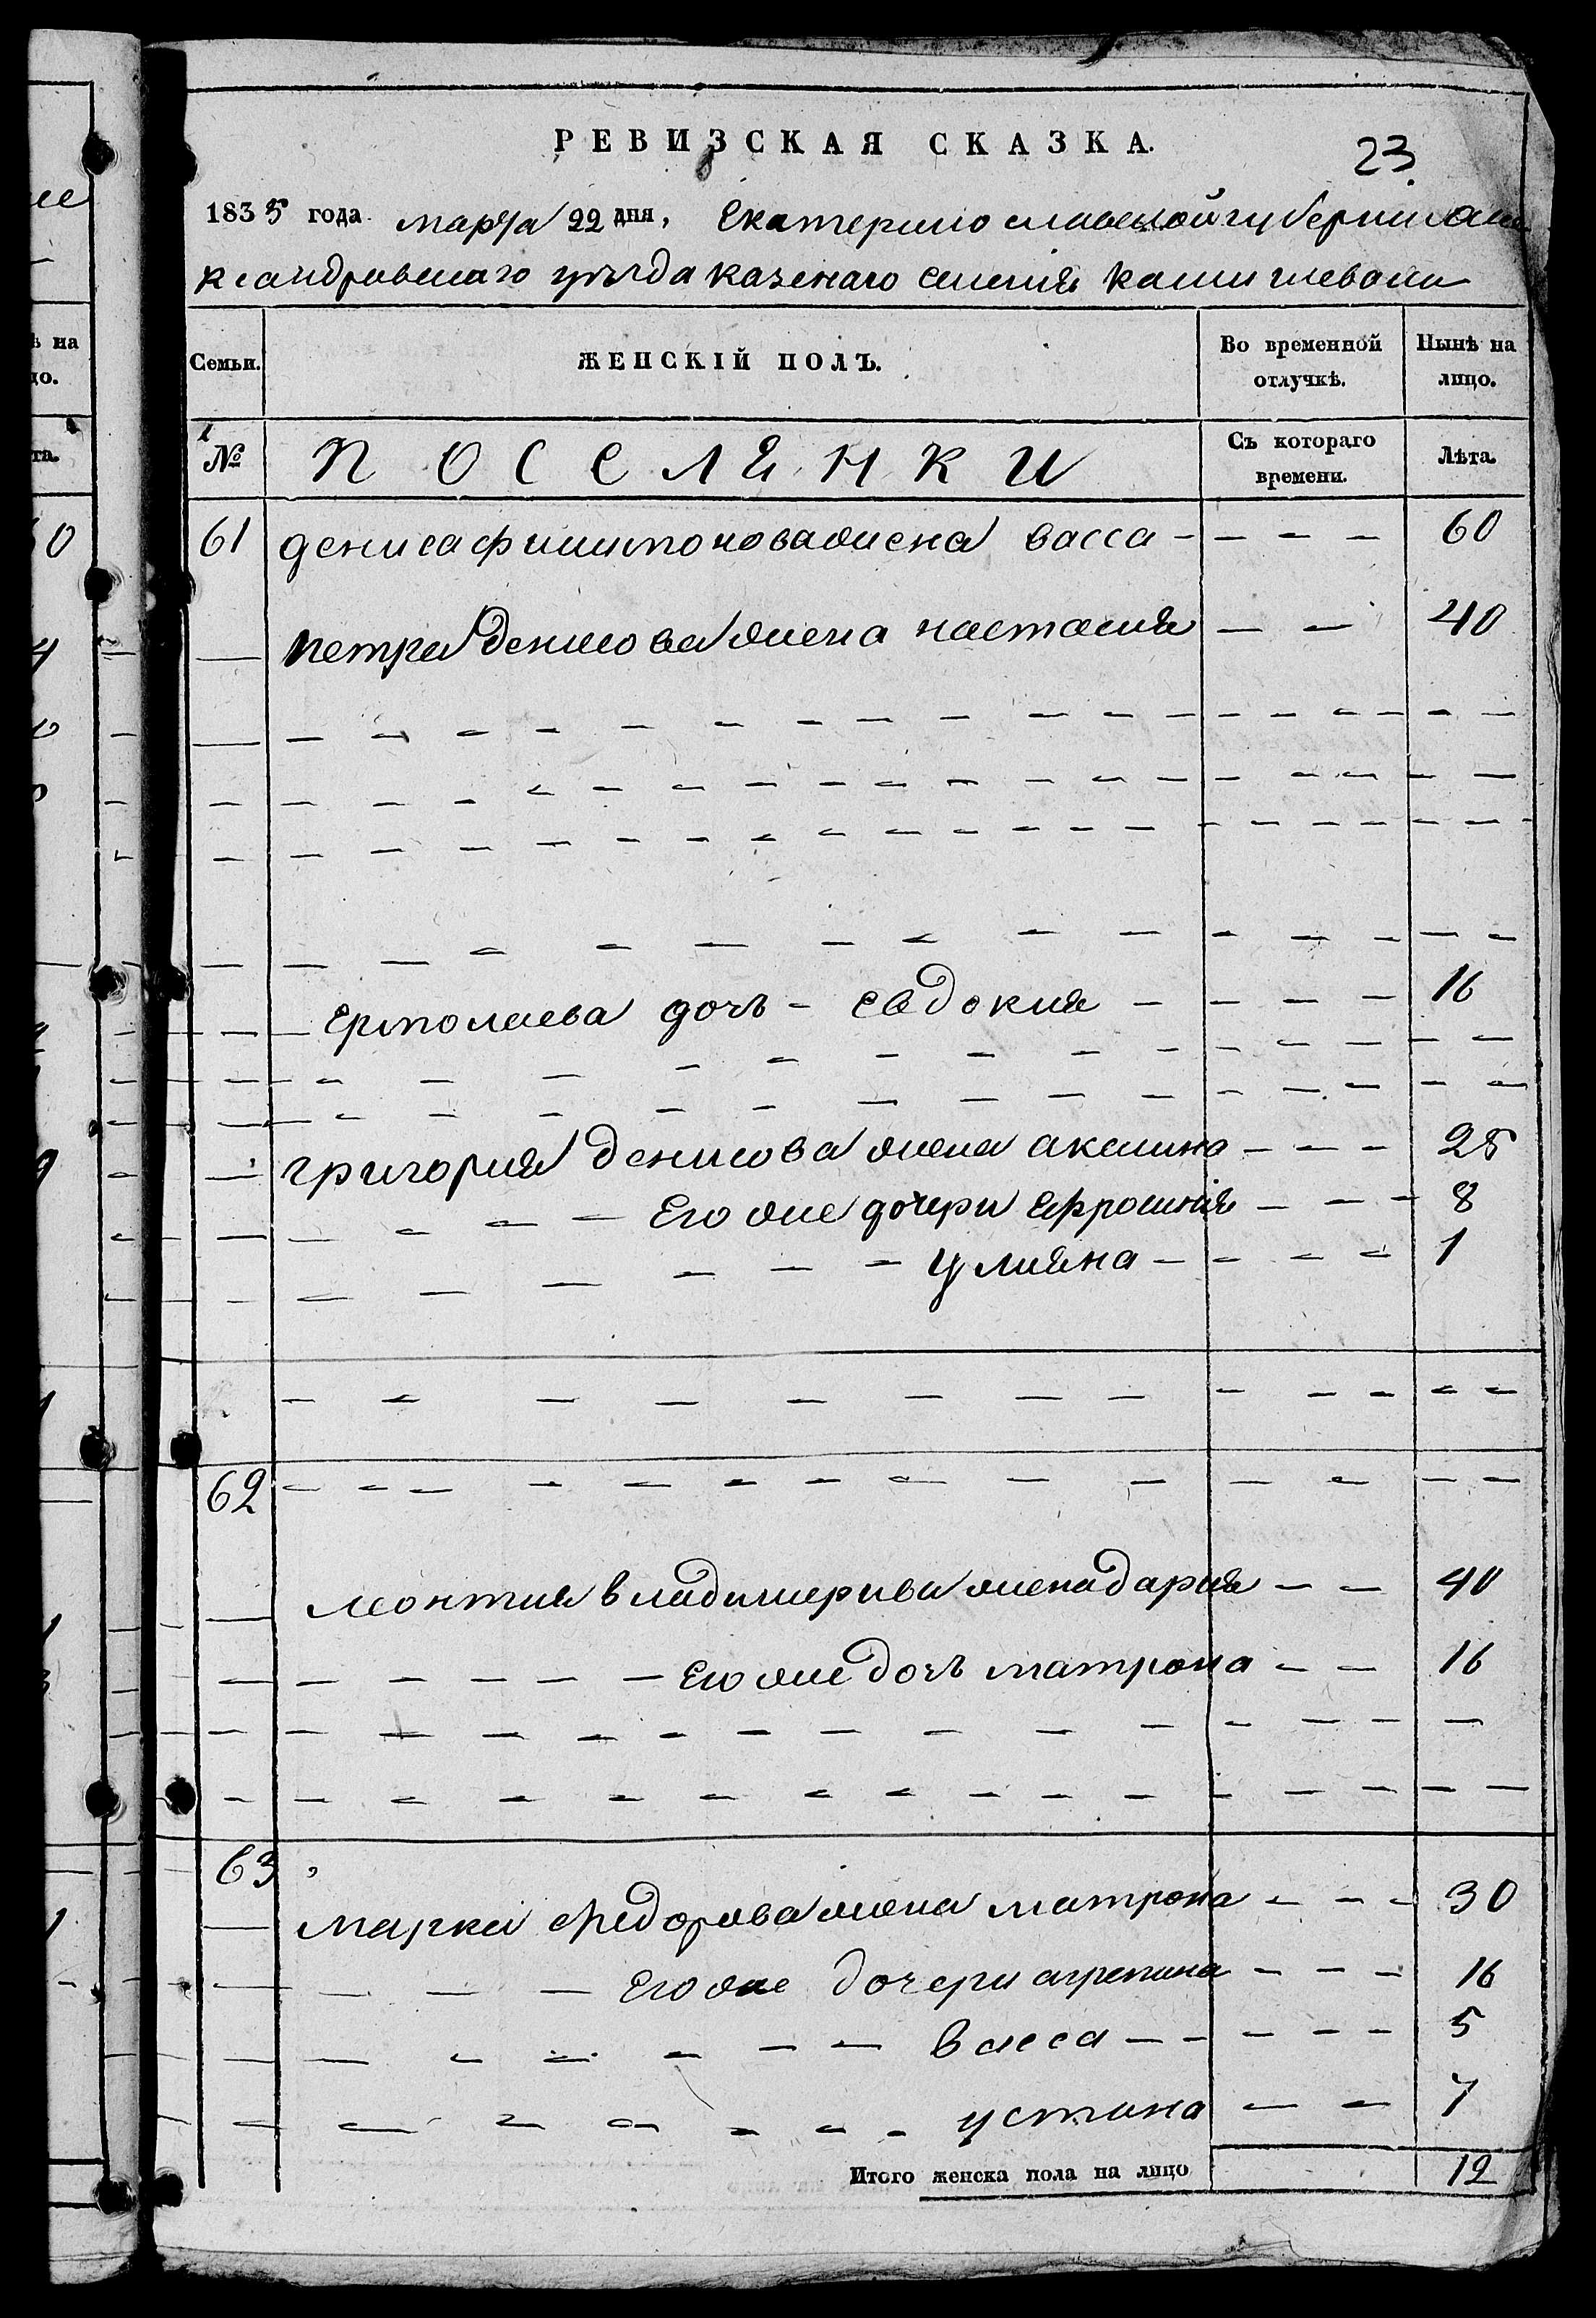 РЕВИЗСКАЯ СКАЗКА.
23
1835 года марта 22 дня, Екатеринославской губернии але
ксандровскаго уѣзда казенаго селения
Семьи. ЖЕНСКІЙ ПОЛЪ. Во временной отлучкѣ. Нынѣ на лицо.
№ ПОСЕЛЯНКИ Съ котораго времени. Лѣта.
61 дениса филимонова жена васса - - - - 60
— петра денисова жена настасия - - 40
— ермолаева дочь - евдокия - - - - 16
— григория денисова жена акелина - - - 28
Его же дочери ефросинія - - - 8
улияна - - - - 1
62
леонтия владимерова жена дария - - 40
Его же дочь матрона - - 16
63
марка федорова жена матрона - - - 30
Его же дочери агрепина - - - 16
васса - - - - - 5
устина - - 7
Итого женска пола на лицо 12